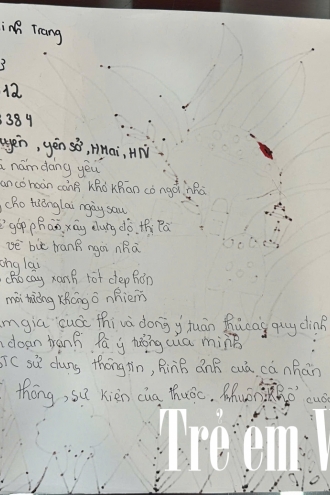 inh Trang
3
12
384
uyên, yên sở, HMai, HN
nấm đáng yêu
có hoàn cảnh khó khăn có ngôi nhà
cho tương lai ngày sau
góp phần xây dựng đô thị là
vẽ bức tranh ngôi nhà
ơng lai
cho cây xanh tốt đẹp hơn
môi trường không ô nhiễm
m gia cuộc thi và đồng ý tuân thủ các quy định
đoan tranh là ý tưởng của mình
BTC sử dụng thông tin, hình ảnh của cá nhân
thông, sự kiện của thuộc khuôn khổ cuộc
Trẻ em V